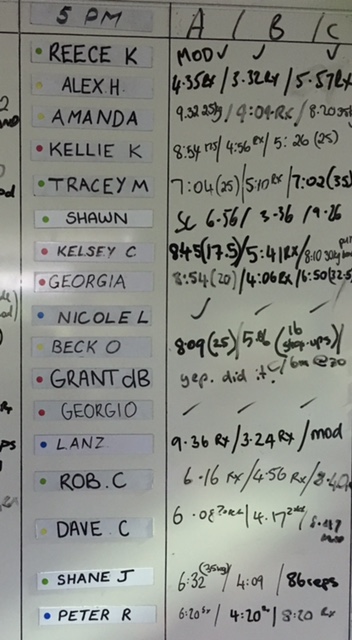 5 PM A / B / C
REECE K MOD ✓ ✓ ✓
ALEX H. 4.35Rx / 3.32Rx / 5.57Rx
AMANDA 9.32 25kg / 4:04Rx / 8:20
KELLIE K 8:54 / 4:56 Rx / 5:26 (25)
TRACEY M 7:04(25) / 5:10 Rx / 7:02(35)
SHAWN SC 6.56 / 3.36 / 9.26
KELSEY C 845(17.5) / 5:41Rx / 8:10 30kg
GEORGIA 8:54(20) / 4:06Rx / 6:50(32.5
NICOLE L ✓ ✓ ✓
BECK O 8:09(25) / 5 (16 step-ups) /
GRANT dB yep. did it.
GEORGIO ✓ ✓ ✓
LANZ 9.36 Rx / 3:24 Rx / mod
ROB. C 6.16 Rx / 4:56 Rx /
DAVE. C 6. / 4.17 /
SHANE J 6:32 (35kg) / 4:09 / 86 reps
PETER R 6:20 / 4:20 / 8:20 Rx